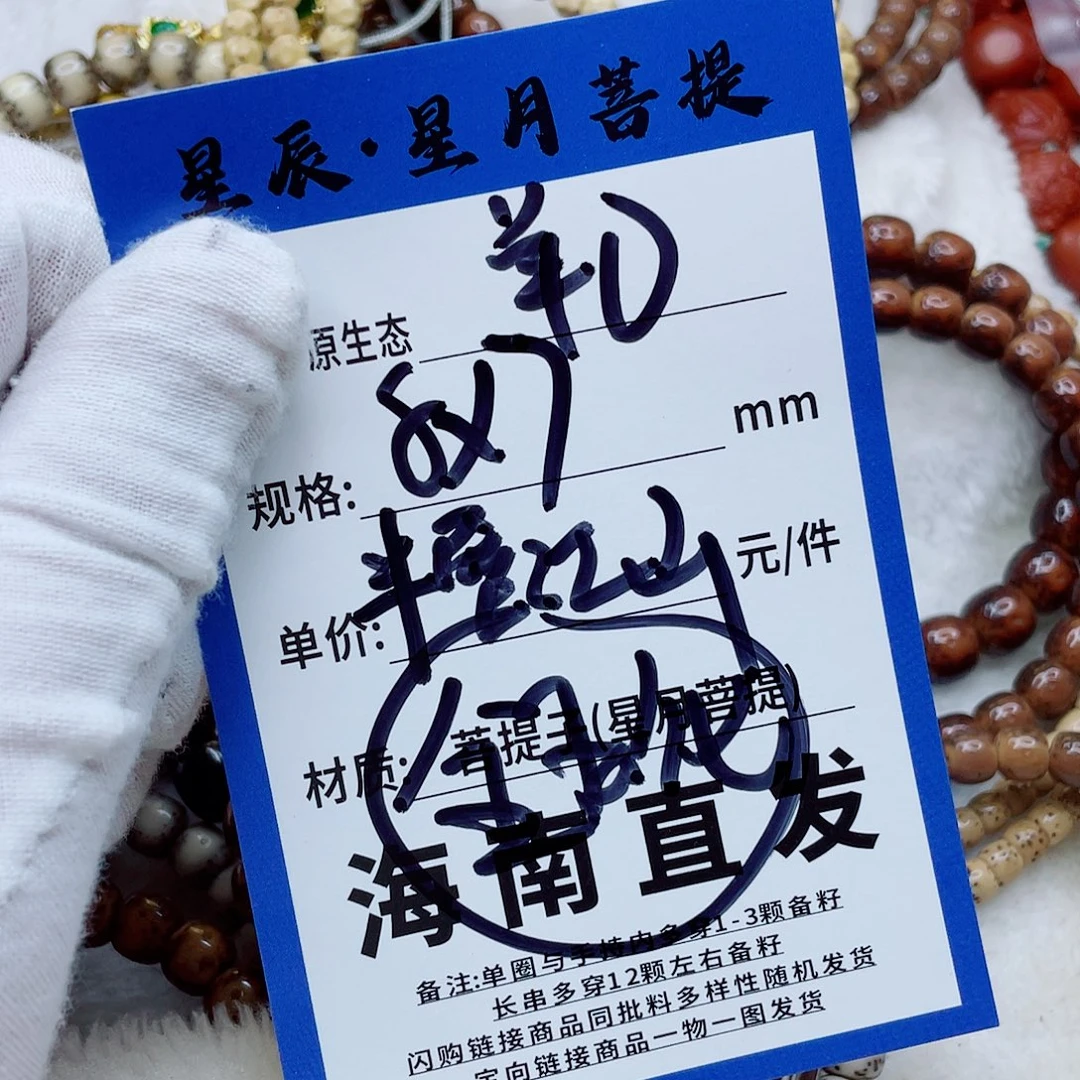 星辰·星月菩提
原生态
8X7
mm
规格:
半壁江山
元/件
单价:
材质: 菩提子(星月菩提)
海南直发
备注:单圈与手持内多穿1-3颗备籽
长串多穿12颗左右备籽
闪购链接商品同批料多样性随机发货
定向链接商品一物一图发货